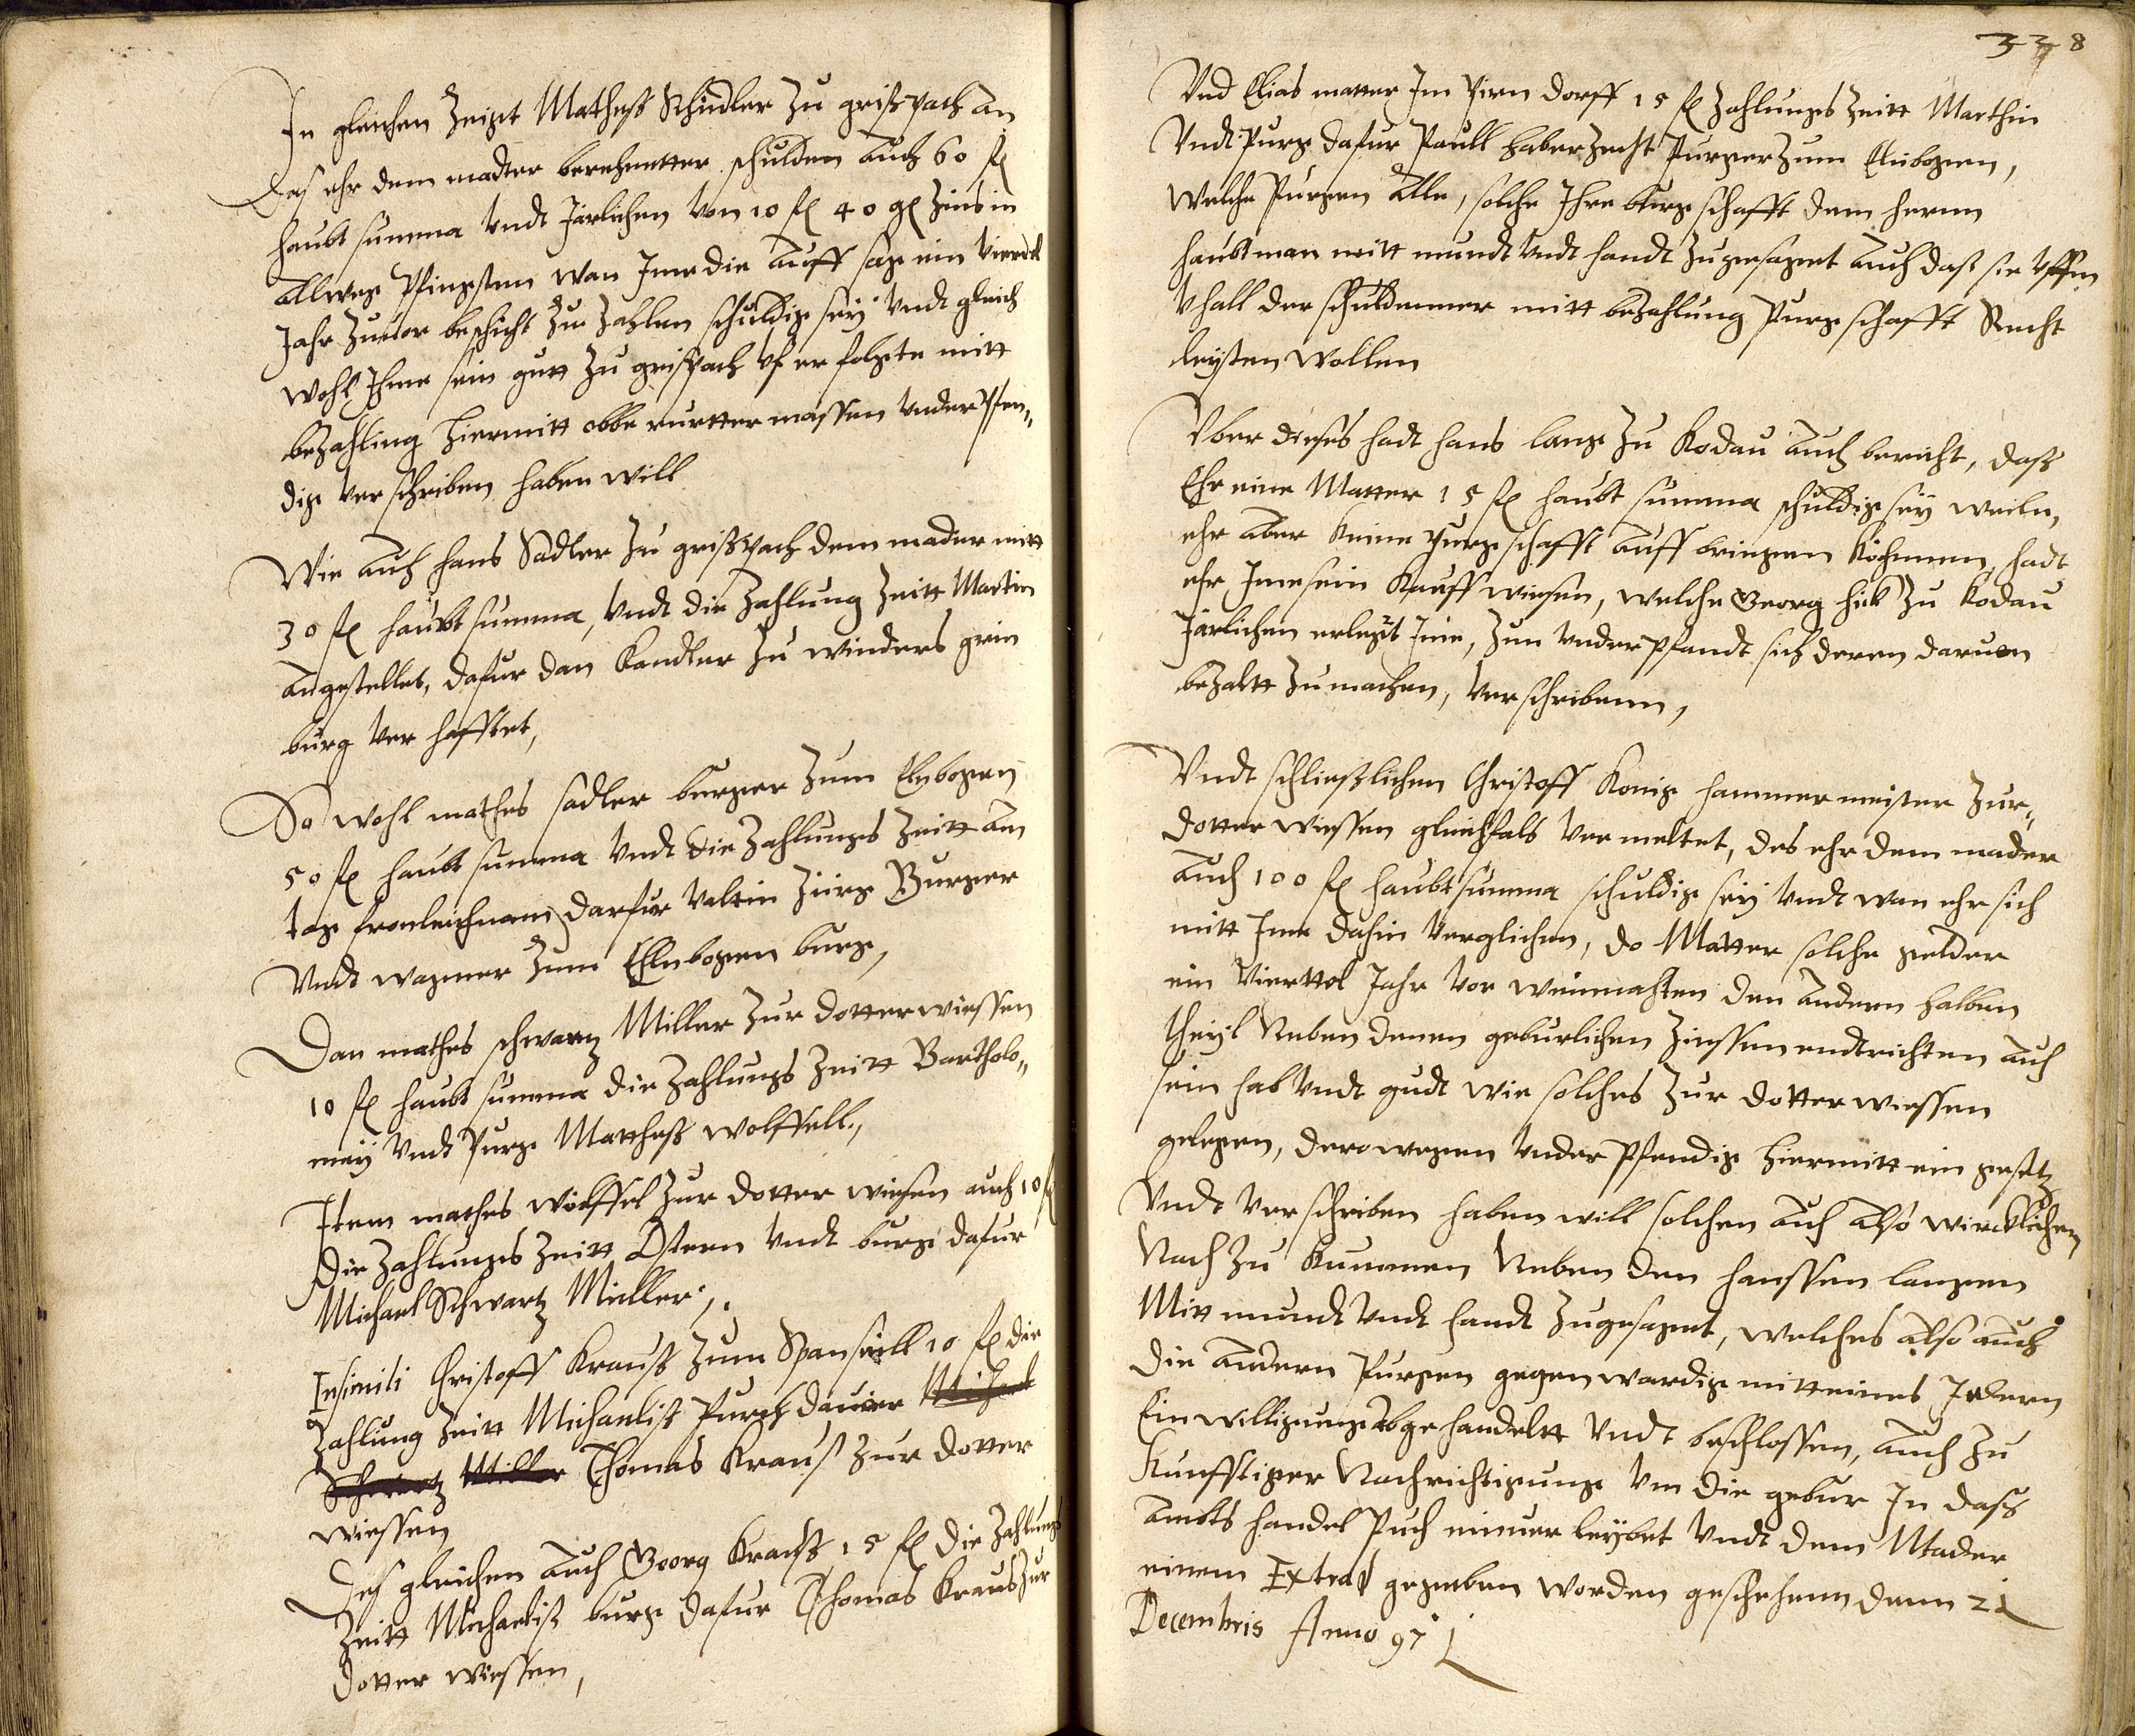 In gleichen Zeigt Matheß Schindler zu grißpach an
Das ehr dem madter berechnetter schulden auch 60 fl
haubt summa undt Järlichen von 10 fl 40 gl Zins in
allweg Pfingsten wan Ime die auff sag ein Vierdel
Jahr Zuuor beschicht zue Zahlen schuldig sey undt gleich
wohl Ihme sein gutt zu grißpach uf erfolgete mitt
bezahling hiermitt obberurtter massen underPfen„
dig verschriben haben will
Wie auch hans Sadler zu grißpach dem mader mitt
30 fl haubt summa, undt die Zahlung Zeitt Martin
angestelles, dafur dan Kandler zu winders grin
burg ver hafftet,
So wohl mathes sadler burger zum Elnbogen
50 fl haubt summa undt die Zahlungs Zeitt am
tag fronleichnam darfur Valtin Zürg Burger
Undt wagner zum Ellnbogen burg,
Dan mathes schwartz Miller zur dotterwiessen
10 fl haubt summa die Zahlungs Zeitt Bartholo„
mey undt Purg Matheß wolffell.,
Item mathes wolffel zur dotter wiesen auch 10 fl
die Zahlungs Zeitt Ostern undt burg dafur
Michael Schwartz Müller,.
Insimili Christoff Krauß zum Spanseill 10 fl die
Zahlung Zeitt Michaeliß Purch dauier Michael
Schwartz Miller Thomas Krauß zur dotter
wiessen
Deß gleichen auch Georg Krauß 15 fl die Zahlungs
Zeitt Michaeliß burg dafur Thomas Kraus zur
dotter wiessen,
338
Vnd Elias matter Im Pirn dorff 15 fl Zahlungs Zeitt Marthin
Vndt Purg dafur Paull haberzecht Purger zum Elnbogen,
Welche Purgen alle, solche Ihre burgschafft dem herrn
haubtman mitt mundt undt handt zugesagent auch das sie uffm
Vhall der schuldenner mitt bezahlung Purgschafft Recht
leysten wollen
Vber dieses hadt hans lang zu Kodau auch bericht, daß
Ehr eine Matter 15 fl haubt summa schuldig sey weiln,
ehr aber keine purgschafft auff bringen köhnnen, hadt
ehr Ime sein Kauff wiesen, welche Georg hick zu Kodau
Järlichen erlegt Ime, zum underpfandt sich deren daruon
bezaltt zu machen, verschribenn,
Vndt schließlichen Christoff Konig hammermeister zur„
dotter wiessen gleichfals vermeltet, des ehr dem mader
auch 100 fl haubt summa schuldig sey undt wan ehr sich
mitt Ime dahin verglichen, do Matter solche gelder
ein Vierttel Jahr vor weinnachten den andern halben
theyl Neben denen geburlichen Zinssen endtrichten auch
sein hab undt gudt wie solches zur dotterwiessen
gelegen, derowegen underPfendig hiermitt ein gesetz
Vndt verschriben haben will solchen auch also wircklichen
Nach zu kummen Neben den hanssen langen
Mitt mundt undt handt zugesagent, welches also auch
die andern Purgen gegenwardig mitt eines Jedern
Einwilligung abgehandeltt undt beschlossen, auch zu
Kunfftiger Nachrichtigung um die gebur In daß
Ambts handel Puch einuerleybet undt dem Mader
einem Extract gegeeben worden geschehenn denn 21
Decembris Anno 97